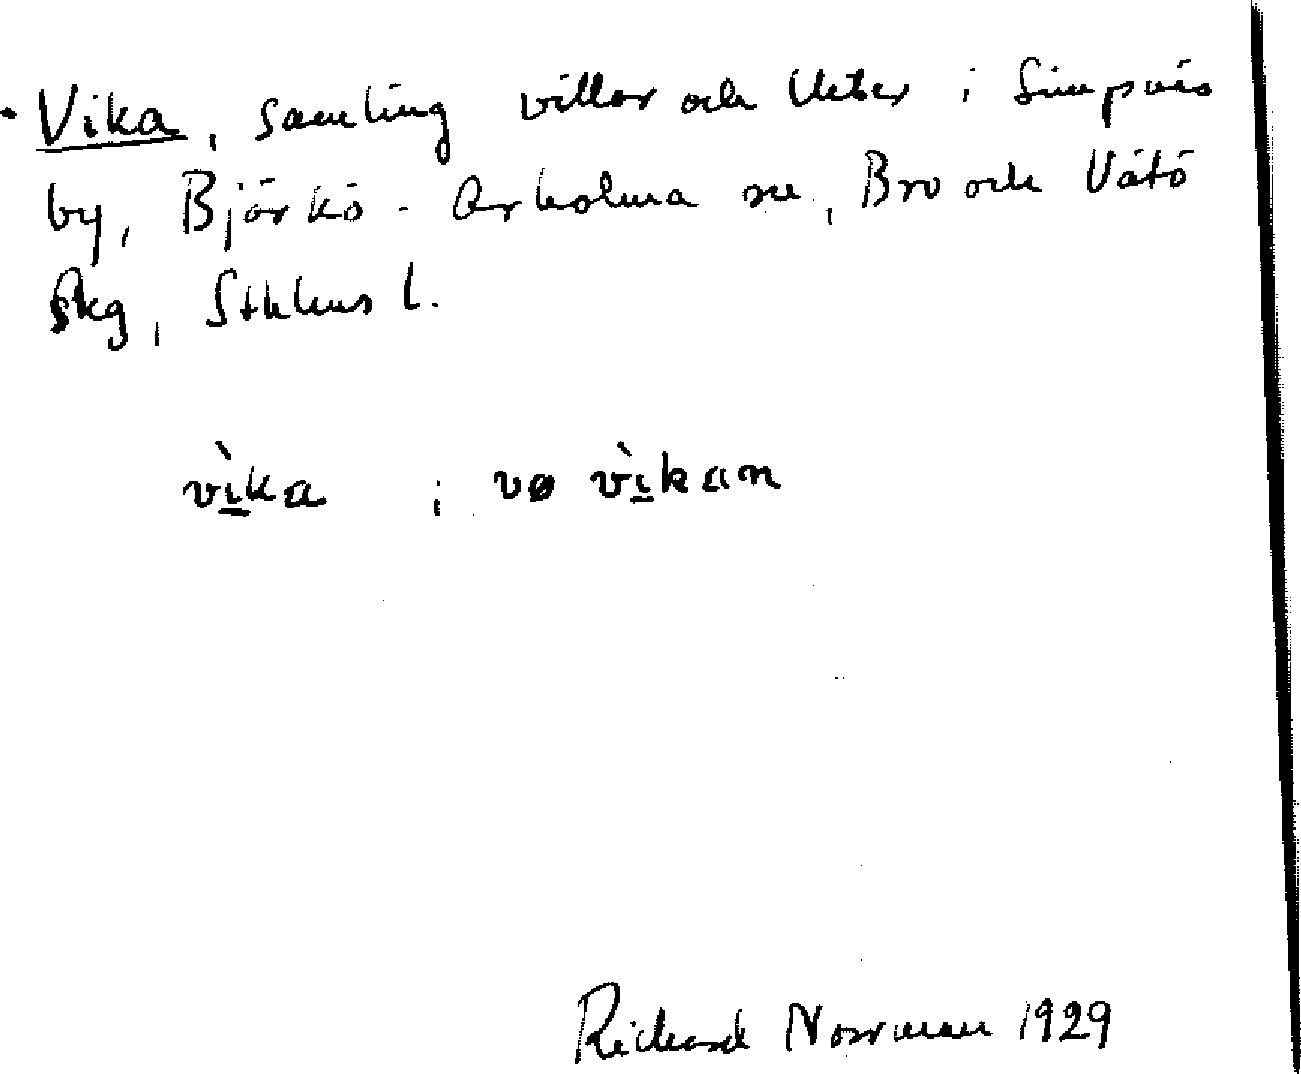 Vika, samling villor och kåtar i Simpnäs
by, Björkö-Arholma sn, Bro och Vätö
skg, Sthlms l.
vìka ; vø vìkan
Richard Norrman 1929